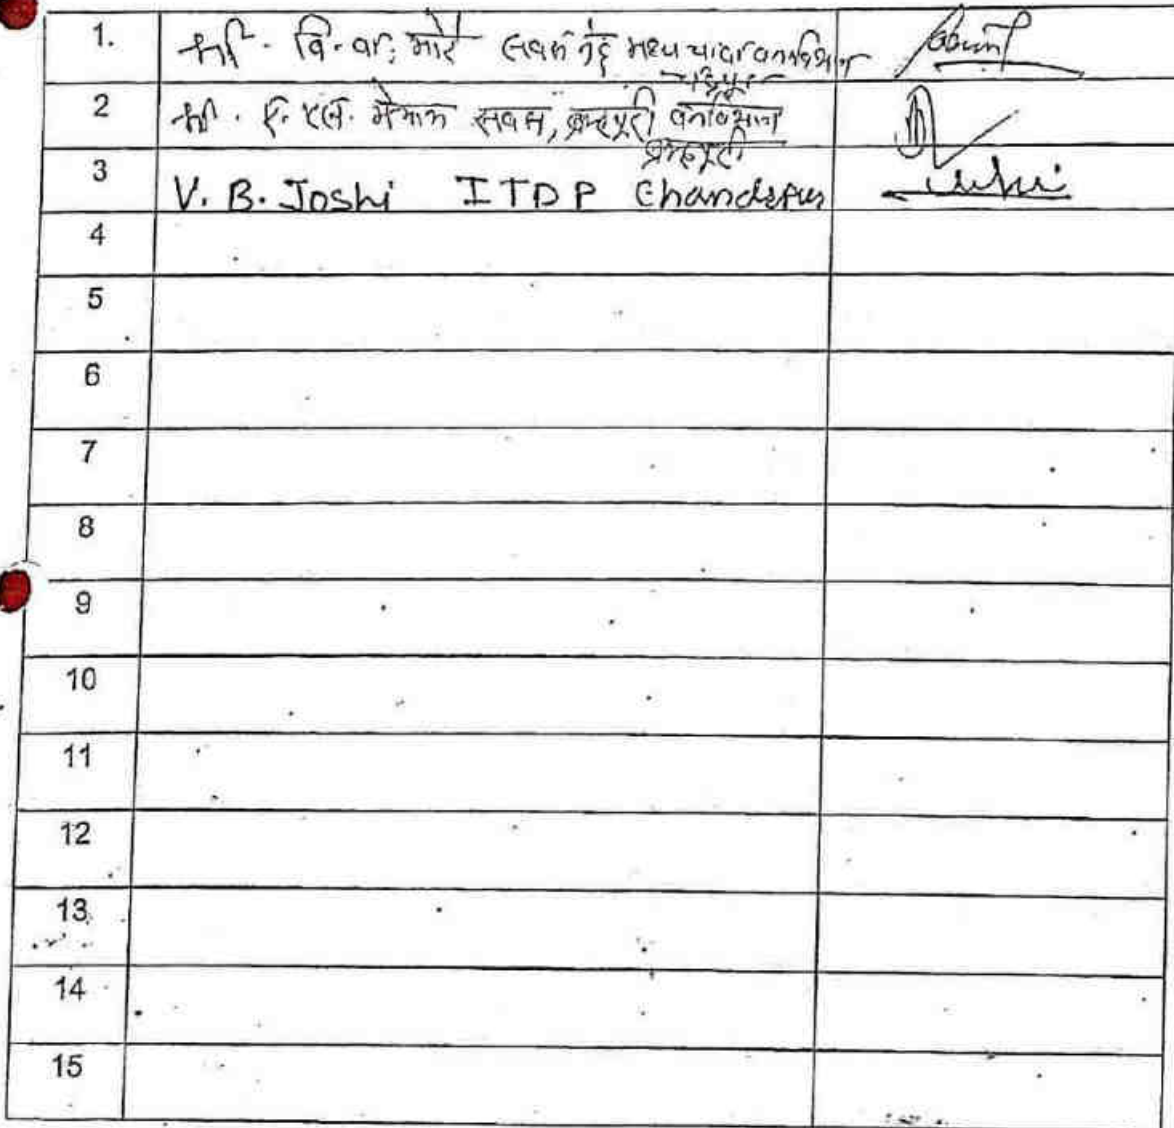 1. श्री. वि. वा. मोरे सवसं मध्य चांदा वनविभाग
चंद्रपूर
2 श्री. सवसं, ब्रम्हपूरी वनविभाग
ब्रम्हपूरी
3 V. B. Joshi ITDP Chandrapur
4
5
6
7
8
9
10
11
12
13
14
15